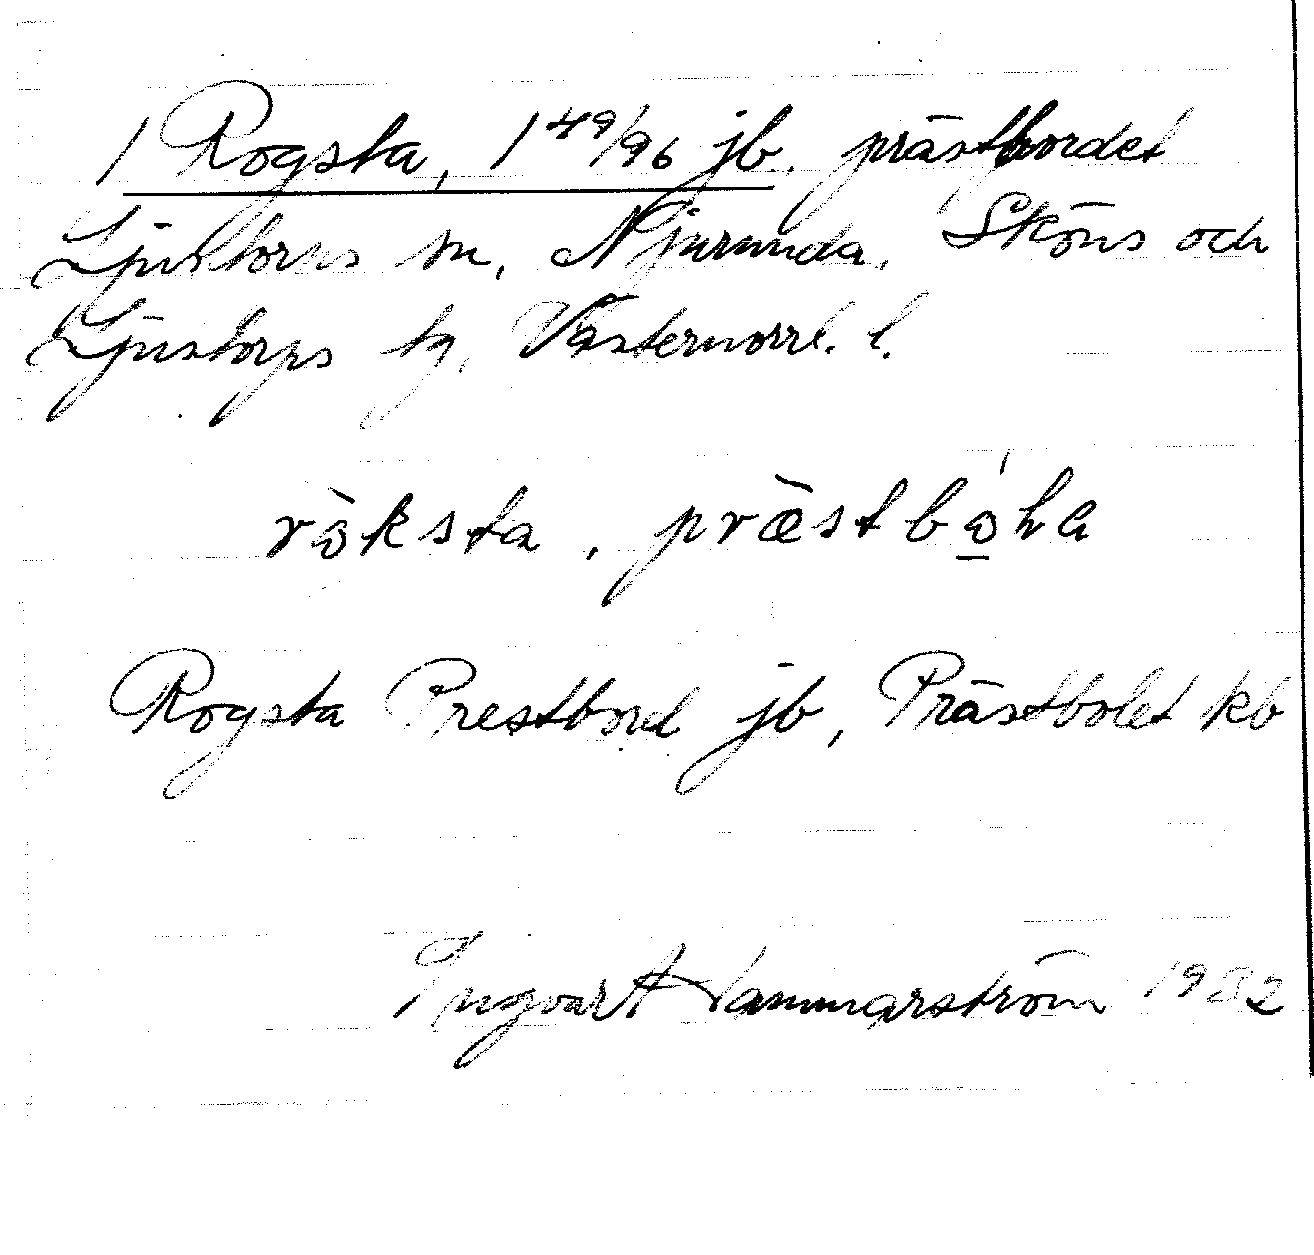 1 Rogsta, 1 49/96 jb. prästbordet
Ljustorps sn, Njurunda, Sköns och
Ljustorps tg, Västernorrl. l.
rò̀ksta, præ̀stbώ̲ʟa
Rogsta Prestbord jb, Prästbolet kb
Ingvar Hammarström 1932